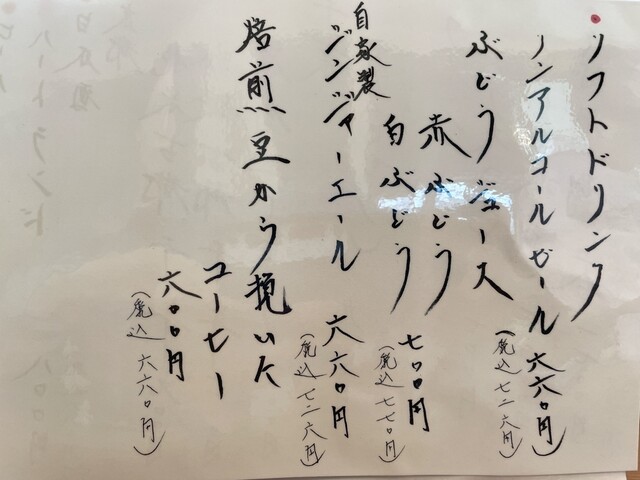 ソフトドリンク
ノンアルコールビール 六六〇円
(税込 七二六円)
ぶどうジュース
赤ぶどう
白ぶどう
七〇〇円
(税込 七七〇円)
自家製
ジンジャーエール 六六〇円
(税込 七二六円)
焙煎豆から挽いた
コーヒー
六〇〇円
(税込 六六〇円)
ハートランド